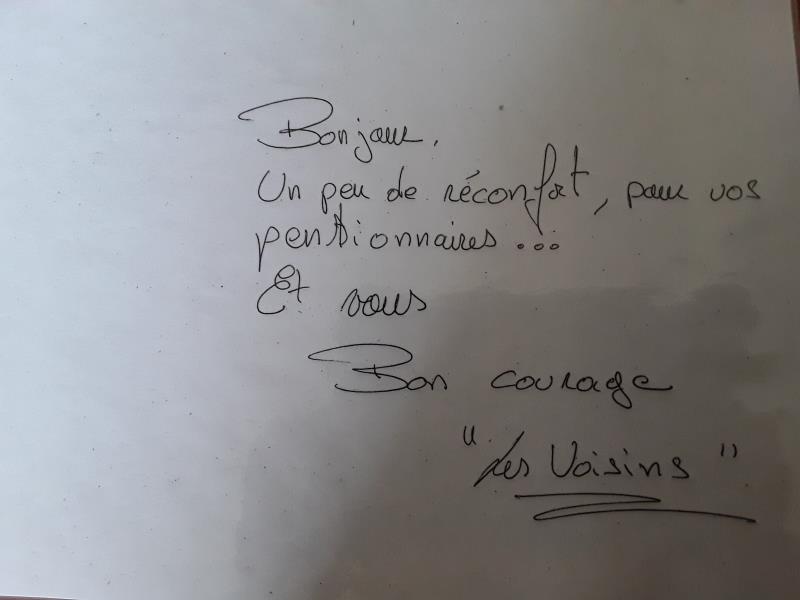 Bonjour.
Un peu de réconfort, pour vos
pentionnaires...
Et vous
Bon courage
"Les Voisins"